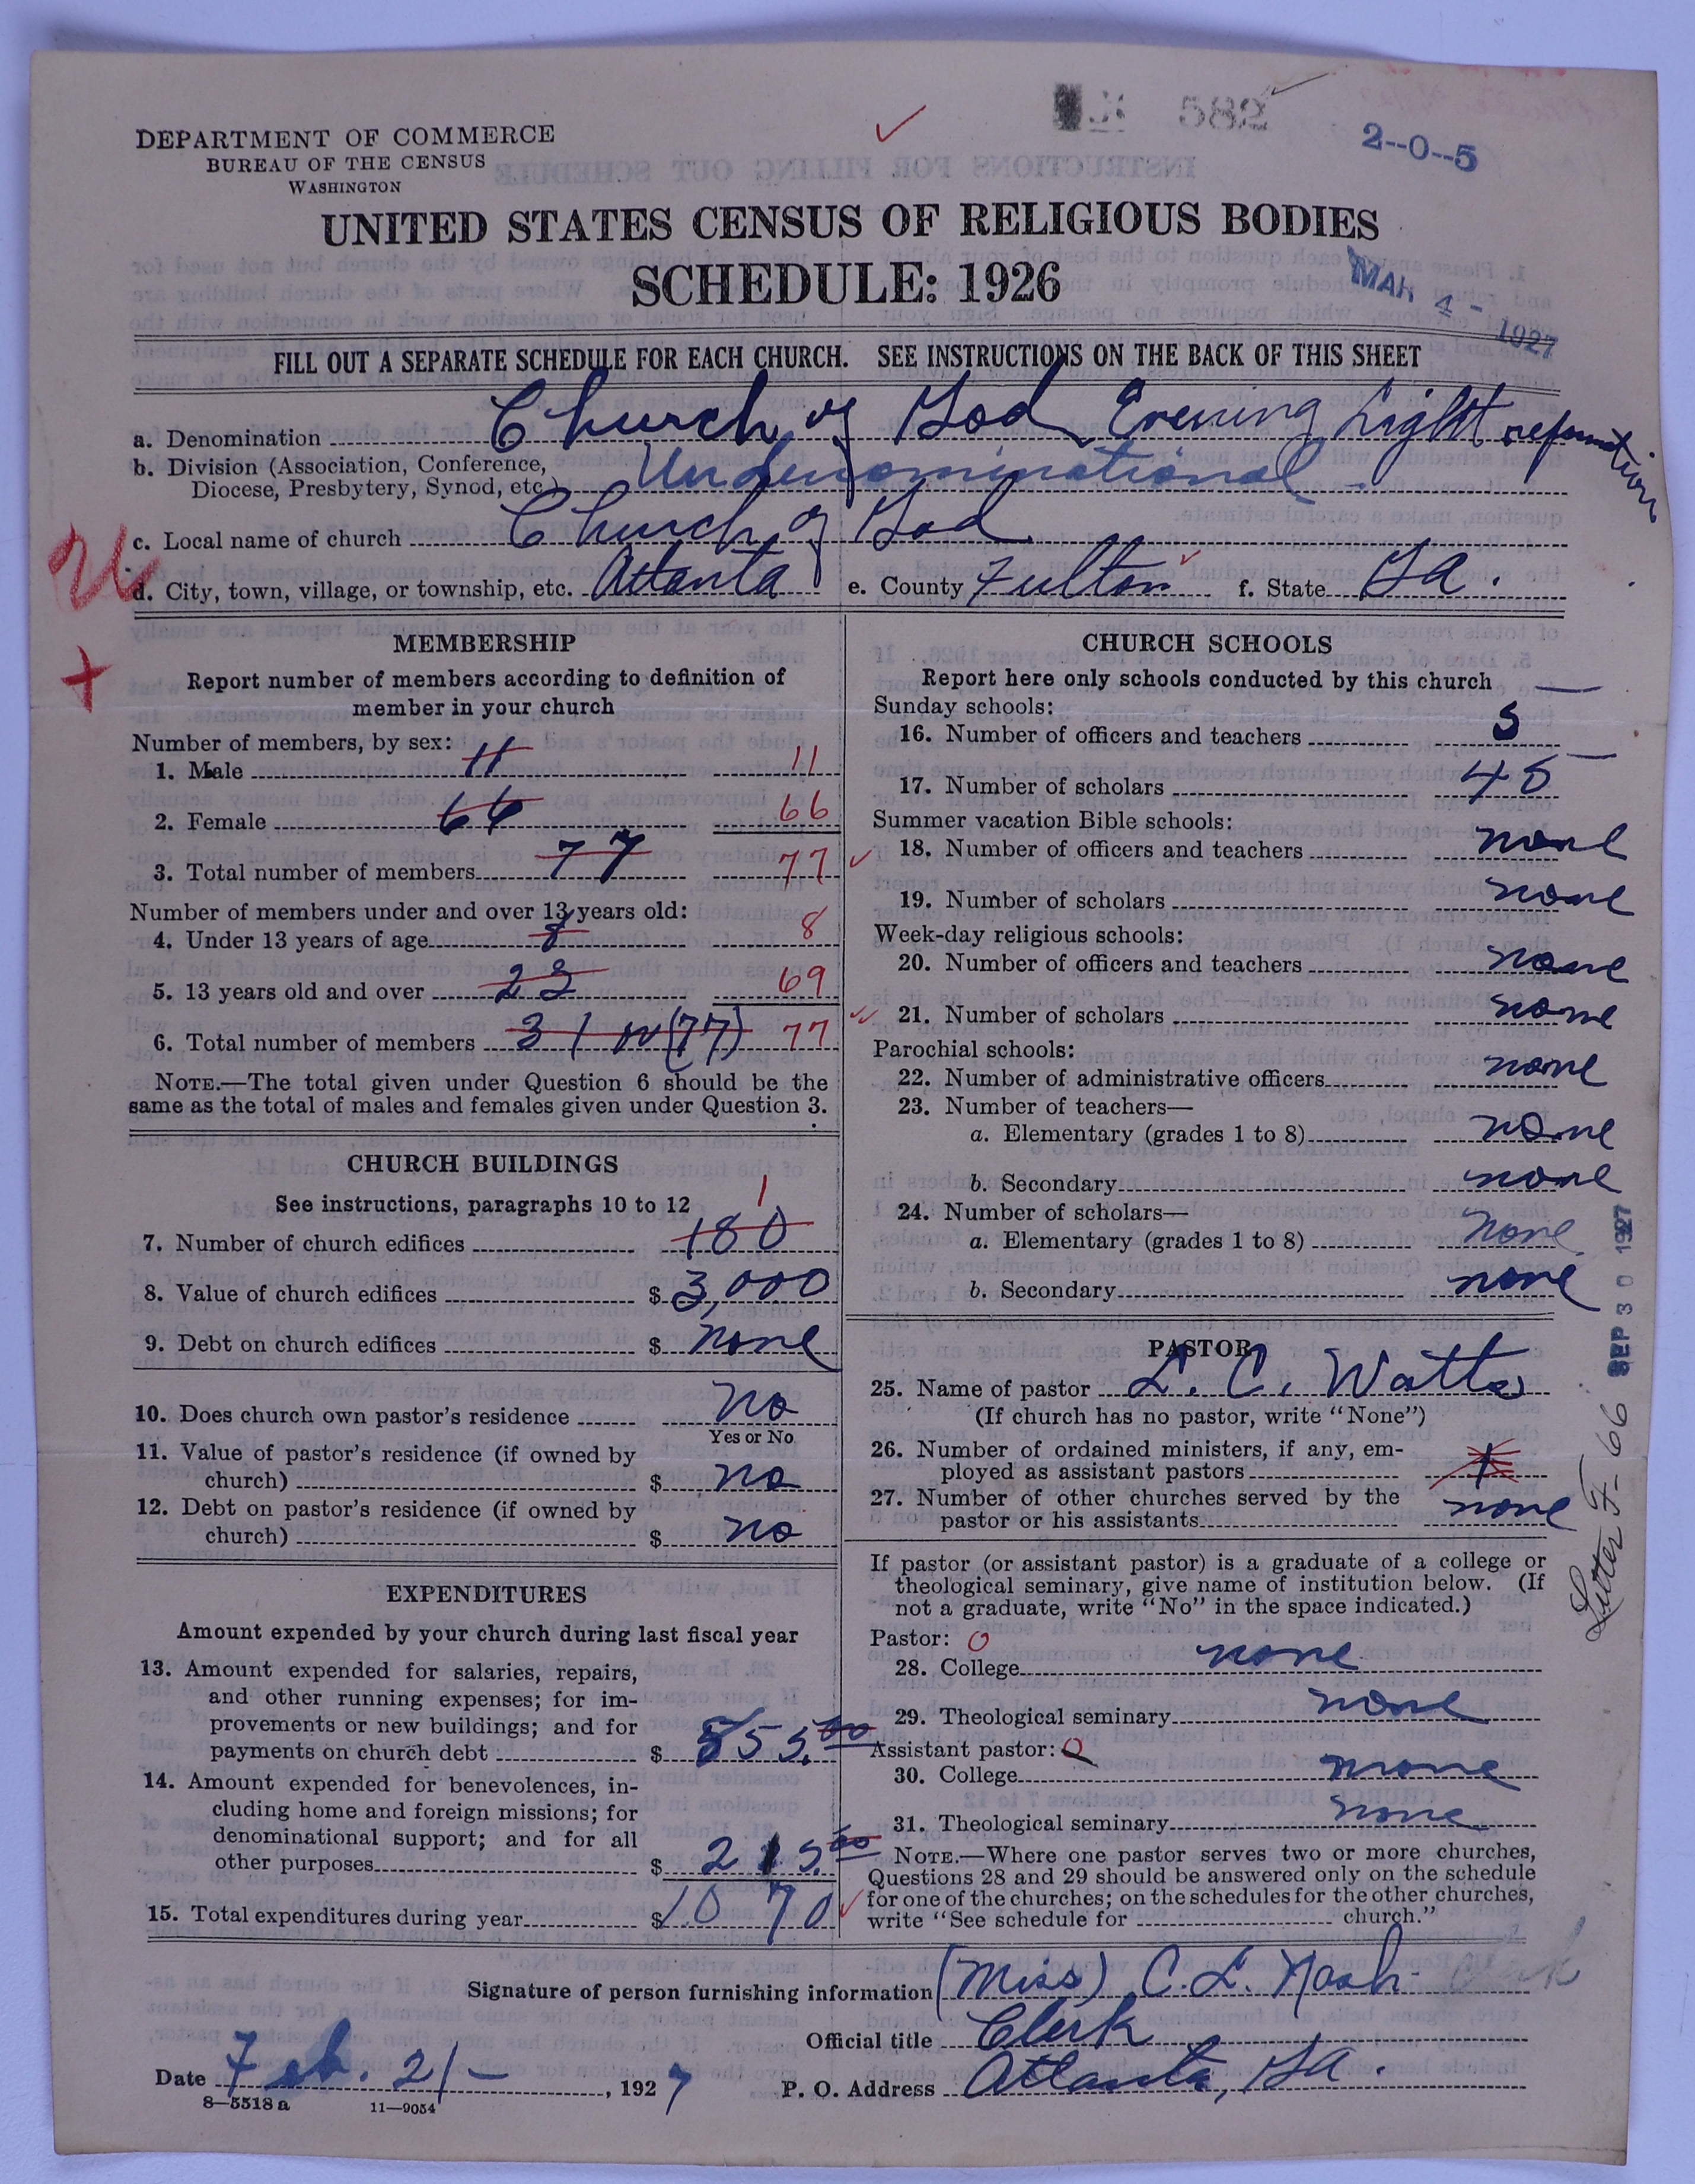 582
2--0--5
DEPARTMENT OF COMMERCE
BUREAU OF THE CENSUS
WASHINGTON
UNITED STATES CENSUS OF RELIGIOUS BODIES
SCHEDULE: 1926
MAR 4 - 1927
FILL OUT A SEPARATE SCHEDULE FOR EACH CHURCH. SEE INSTRUCTIONS ON THE BACK OF THIS SHEET
a. Denomination Church of God Evening Light reformation
b. Division (Association, Conference, Diocese, Presbytery, Synod, etc.) Undenominational
c. Local name of church Church of God
d. City, town, village, or township, etc. Atlanta e. County Fulton f. State Ga.
MEMBERSHIP
Report number of members according to definition of
member in your church
Number of members, by sex:
1. Male 11 11
2. Female 66 66
3. Total number of members 77 77
Number of members under and over 13 years old:
4. Under 13 years of age 8 8
5. 13 years old and over 23 69
6. Total number of members 31 or (77) 77
NOTE.—The total given under Question 6 should be the
same as the total of males and females given under Question 3.
CHURCH BUILDINGS
See instructions, paragraphs 10 to 12
7. Number of church edifices 180 1
8. Value of church edifices $ 3,000
9. Debt on church edifices $ none
10. Does church own pastor's residence No
Yes or No
11. Value of pastor's residence (if owned by
church) $ no
12. Debt on pastor's residence (if owned by
church) $ no
EXPENDITURES
Amount expended by your church during last fiscal year
13. Amount expended for salaries, repairs,
and other running expenses; for im-
provements or new buildings; and for
payments on church debt $ 855.00
14. Amount expended for benevolences, in-
cluding home and foreign missions; for
denominational support; and for all
other purposes $ 215.00
15. Total expenditures during year $ 1070
CHURCH SCHOOLS
Report here only schools conducted by this church
Sunday schools:
16. Number of officers and teachers 5
17. Number of scholars 45
Summer vacation Bible schools:
18. Number of officers and teachers none
19. Number of scholars none
Week-day religious schools:
20. Number of officers and teachers none
21. Number of scholars none
Parochial schools:
22. Number of administrative officers none
23. Number of teachers—
a. Elementary (grades 1 to 8) none
b. Secondary none
24. Number of scholars—
a. Elementary (grades 1 to 8) none
b. Secondary none
PASTOR
25. Name of pastor L. C. Watts
(If church has no pastor, write "None")
26. Number of ordained ministers, if any, em-
ployed as assistant pastors 1
27. Number of other churches served by the
pastor or his assistants none
If pastor (or assistant pastor) is a graduate of a college or
theological seminary, give name of institution below. (If
not a graduate, write "No" in the space indicated.)
Pastor: 0
28. College none
29. Theological seminary none
Assistant pastor: 0
30. College none
31. Theological seminary none
NOTE.—Where one pastor serves two or more churches,
Questions 28 and 29 should be answered only on the schedule
for one of the churches; on the schedules for the other churches,
write "See schedule for church."
SEP 30 1927
Letter F-66
Signature of person furnishing information (Miss) C. L. Nash
Official title Clerk
Date Feb. 21- , 1927 P. O. Address Atlanta, Ga.
8-5518a 11-9054